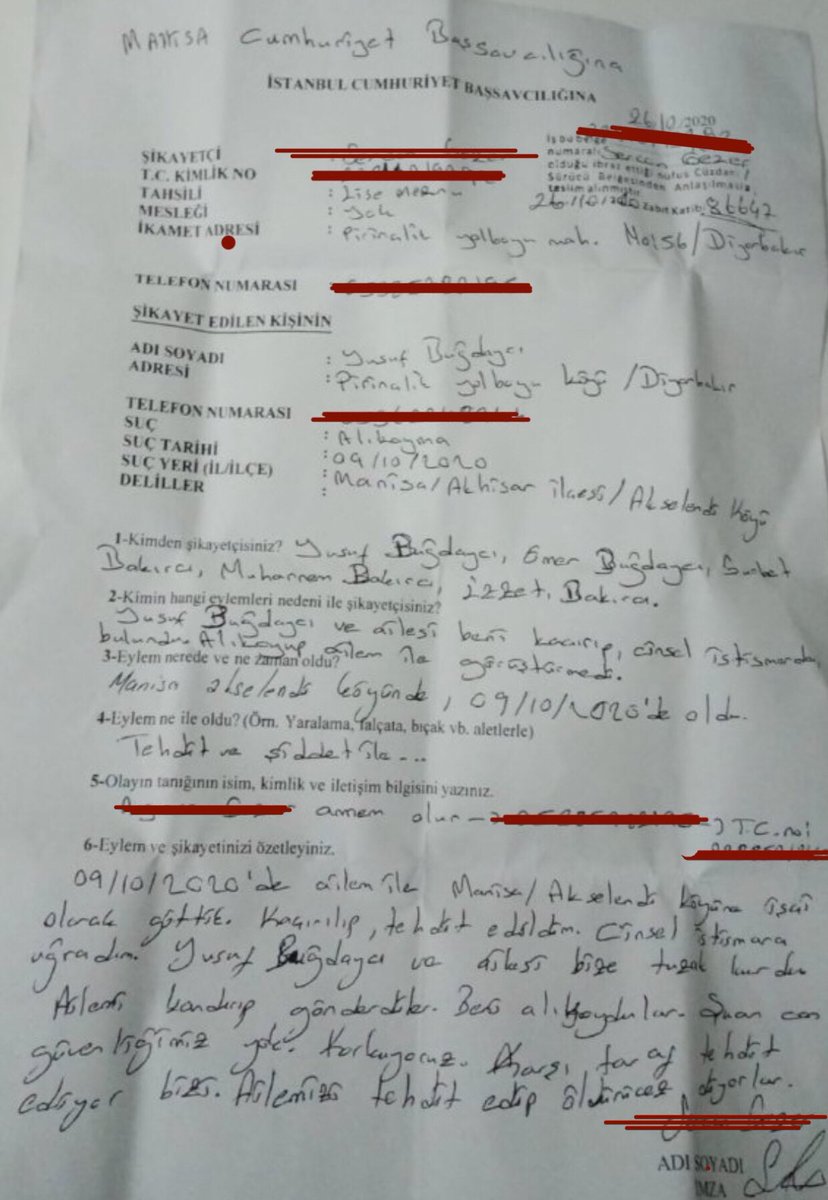 MANİSA Cumhuriyet Başsavcılığına
İSTANBUL CUMHURİYET BAŞSAVCILIĞINA
26/0 /2020
İş bu belge
numaralı
olduğu ibraz ettiği Nüfus Cüzdanı /
Sürücü Belgesinden Anlaşılmakla,
teslim alınmıştır.
26/10/2020 Zabıt Katibi 86642
ŞİKAYETÇİ
T.C. KİMLİK NO
TAHSİLİ : Lise mezunu
MESLEĞİ : Yok
İKAMET ADRESİ : Pirinçlik yolboyu mah. No:56/Diyarbakır
TELEFON NUMARASI
ŞİKAYET EDİLEN KİŞİNİN
ADI SOYADI : Yusuf Buğdaycı
ADRESİ : Pirinçlik yolboyu köyü /Diyarbakır
TELEFON NUMARASI
SUÇ : Alıkoyma
SUÇ TARİHİ : 09/10/2020
SUÇ YERİ (İL/İLÇE) : Manisa/Akhisar ilçesi/Akselendi Köyü
DELİLLER :
1-Kimden şikayetçisiniz? Yusuf Buğdaycı, Ömer Buğdaycı,
Bakırcı, Muharrem Bakırcı, İzzet, Bakırcı.
2-Kimin hangi eylemleri nedeni ile şikayetçisiniz?
Yusuf Buğdaycı ve ailesi beni kaçırıp, cinsel istismarda
bulundu. Alıkoyup ailem ile görüştürmedi.
3-Eylem nerede ve ne zaman oldu?
Manisa akselendi köyünde, 09/10/2020'de oldu.
4-Eylem ne ile oldu? (Örn. Yaralama, falçata, bıçak vb. aletlerle)
Tehdit ve şiddet ile...
5-Olayın tanığının isim, kimlik ve iletişim bilgisini yazınız.
annem olur → → T.C. no:
6-Eylem ve şikayetinizi özetleyiniz.
09/10/2020'de ailem ile Manisa/Akselendi köyüne işçi
olarak gittik. Kaçırılıp, tehdit edildim. Cinsel istismara
uğradım. Yusuf Buğdaycı ve ailesi bize tuzak kurdu
Ailemi kandırıp gönderdiler. Beni alıkoydular. Şuan can
güvenliğimiz yok. Korkuyoruz. Karşı taraf tehdit
ediyor bizi. Ailemizi tehdit edip öldürücez diyorlar.
ADI SOYADI
İMZA